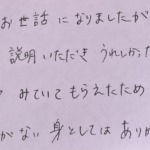 お世話になりましたが
説明いただき うれしかった
みていてもらえたため
がない 身としては あり